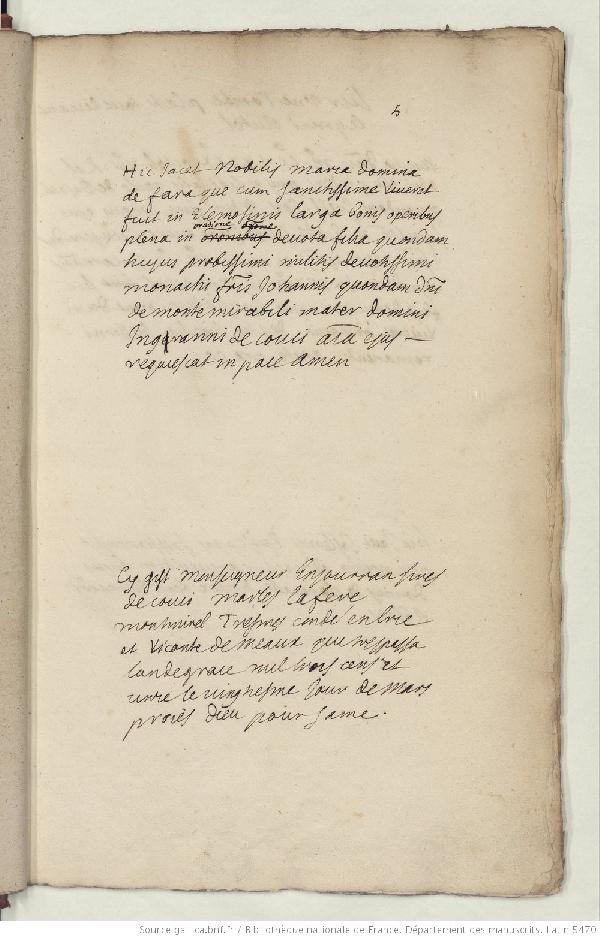 5
Hic Jacet Nobilis maria domina
de fara que cum sanctissime viveret
fuit in Elemosinis larga bonis operibus
oratione
plena in devota filia quondam
hujus probissimi militis devotissimi
monachi fris Johannis quondam dni
de monte mirabili mater domini
Ingeranni de couci aia ejus
requiescat in pace amen
Cy gist monseigneur Enjourran sires
de couci marles la fere
montmirel Tresmes condé en brie
et viconte de meaux que trespassa
lan de grace mil trois cens et
unze le vinghesme Jour de mars
proiés dieu pour same.
Source gallica.bnf.fr / Bibliothèque nationale de France. Département des manuscrits. Latin 5470